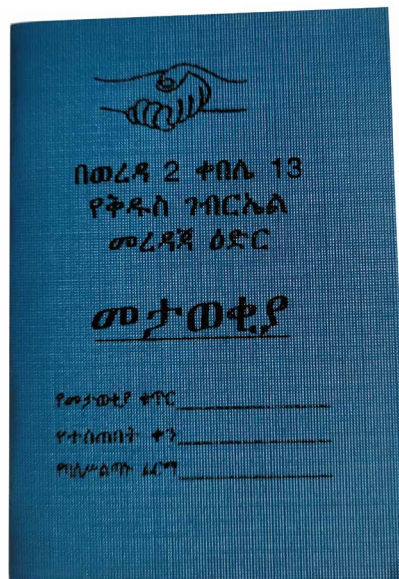 በወረዳ 2 ቀበሌ 13
የቅዱስ ገብርኤል
መረዳጃ ዕድር
መታወቂያ
የመታወቂያ ቁጥር
የተሰጠበት ቀን
የባለሥልጣኑ ፊርማ